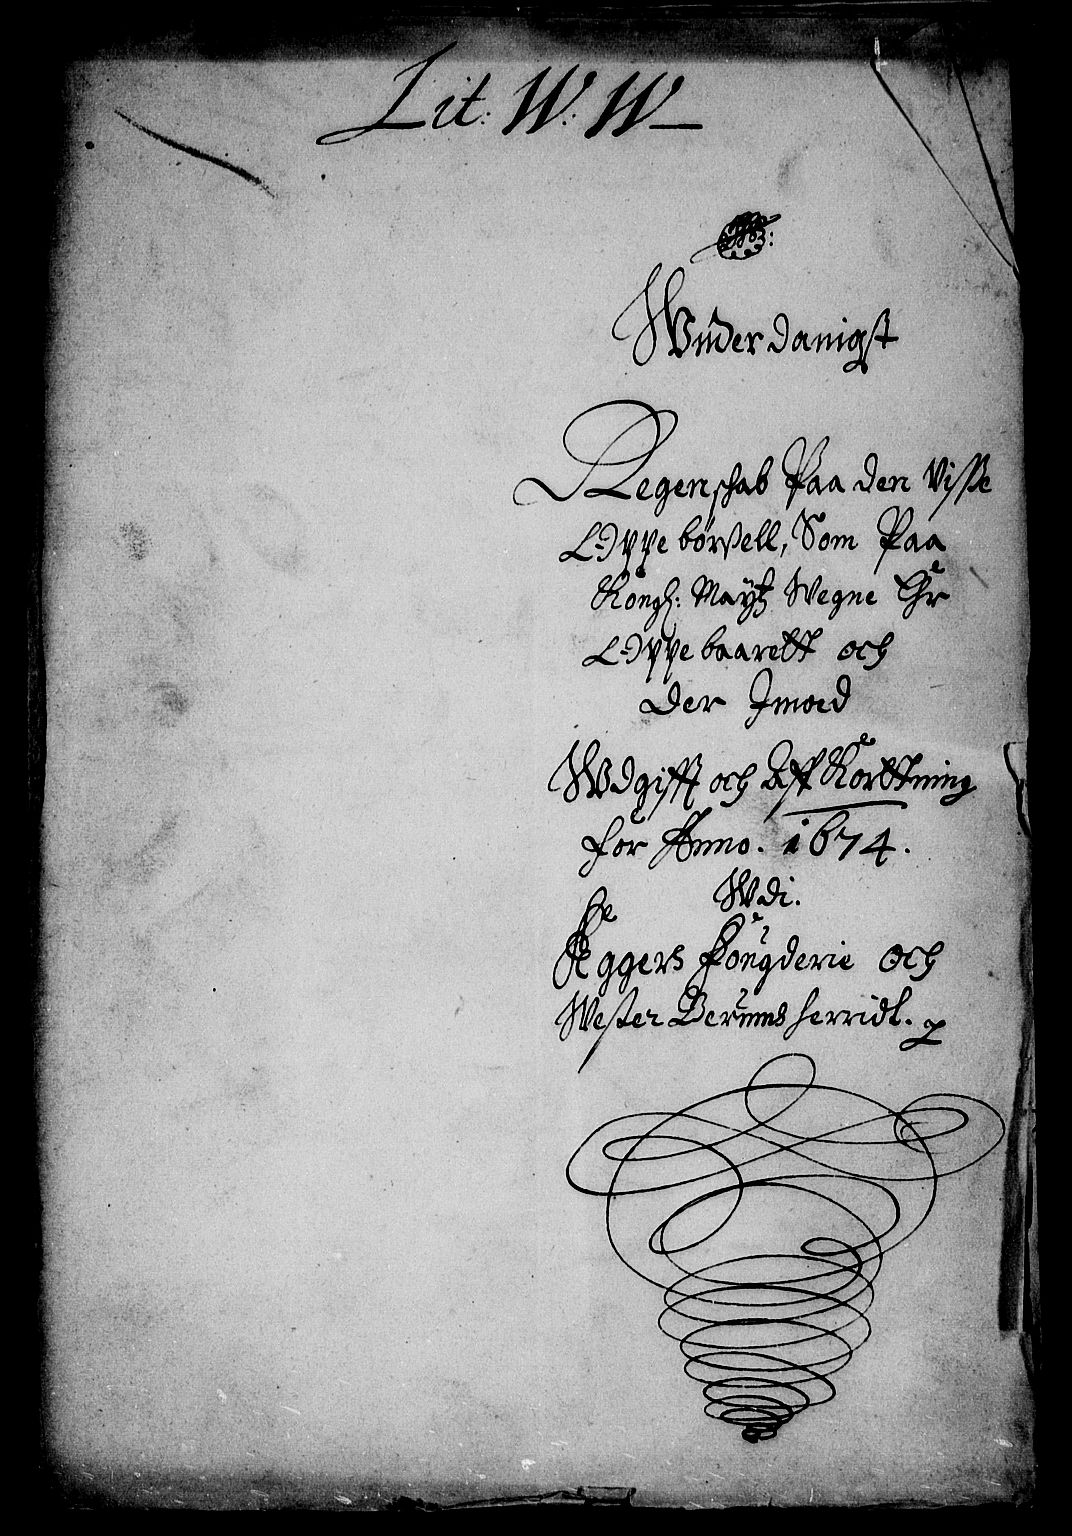 Lit: W: W
Wnderdanigst
Regenschab Paa den Visse
Oppebørsell, Som Paa
Kongl: Maytz Wegne Er
Oppebaarett och
Der Imoed
Wdgifft och Aff Kortning
for Anno. 1674.
Wdi.
Eggers Fougderie och
Wester Berums herridt.